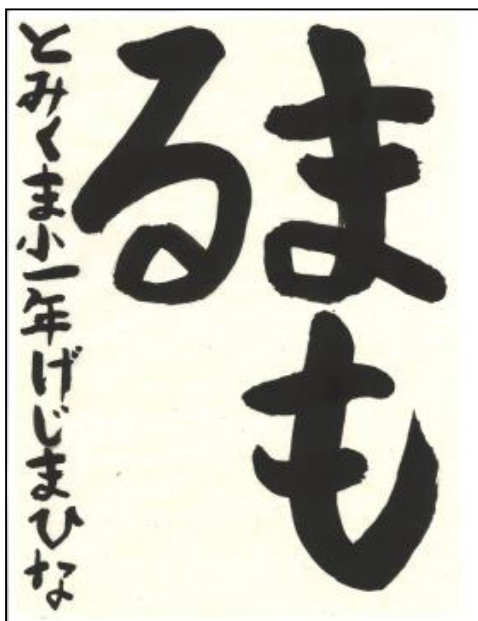 まも
る
とみくま小一年げじまひな